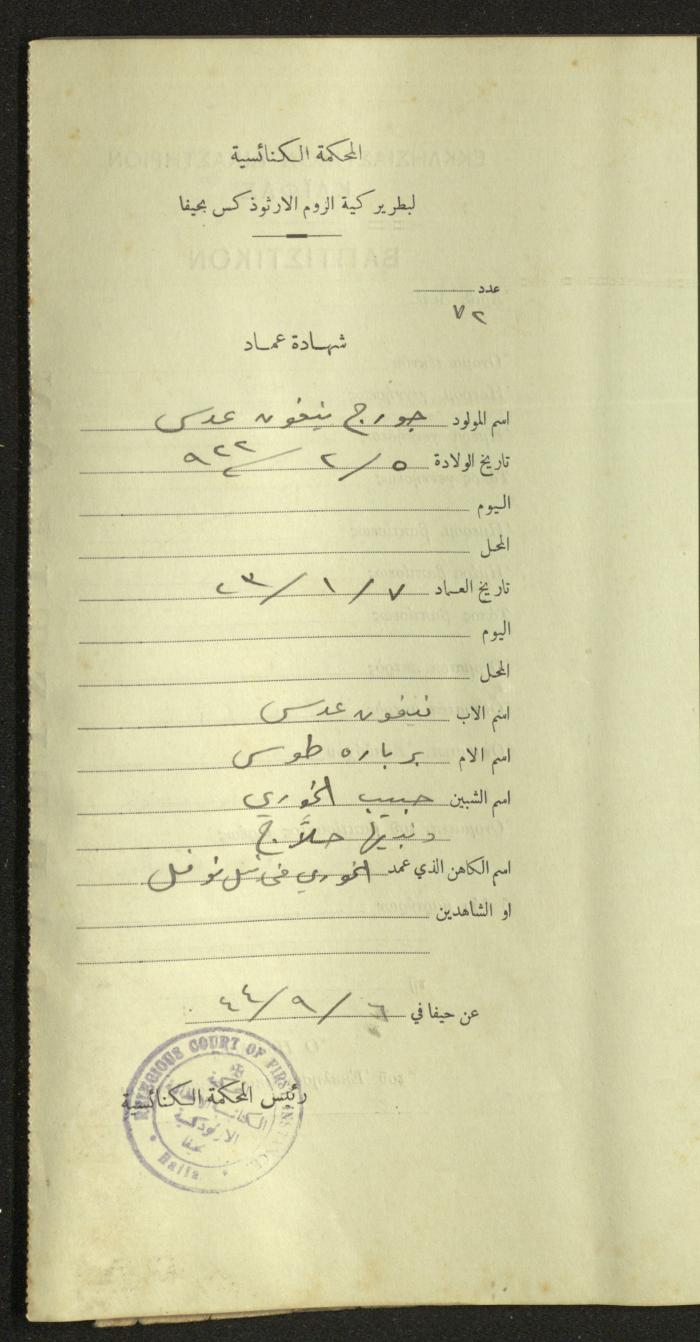 المحكمة الكنائسية
لبطريركية الروم الارثوذكس بحيفا
عدد
٧٢
شهادة عماد
اسم المولود جورج نيفون عدسى
تاريخ الولادة ٥/٢/٩٢٢
اليوم
المحل
تاريخ العماد ٧/١/٢٣
اليوم
المحل
اسم الاب نيفون عدسى
اسم الام برباره طوسى
اسم الشبين حبيب الخوري
حلاّج
اسم الكاهن الذي عمد الخوري نوفل
او الشاهدين
عن حيفا في ٦/٩/٤٤
رئيس المحكمة الكنائسية
RELIGIOUS COURT OF FIRST INSTANCE
Haifa
الارثوذكسية
بحيفا